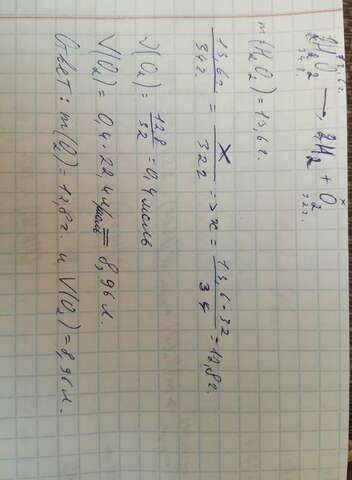 13,6г. x
H2O2 → H2 + O2
34г. 32г.
m(H2O2) = 13,6г.
13,6г / 34г. = x / 32г => x = 13,6·32 / 34 = 12,8г.
ν(O2) = 12,8 / 32 = 0,4 моль
V(O2) = 0,4·22,4 л/моль = 8,96 л.
Ответ: m(O2) = 12,8г. и V(O2) = 8,96 л.